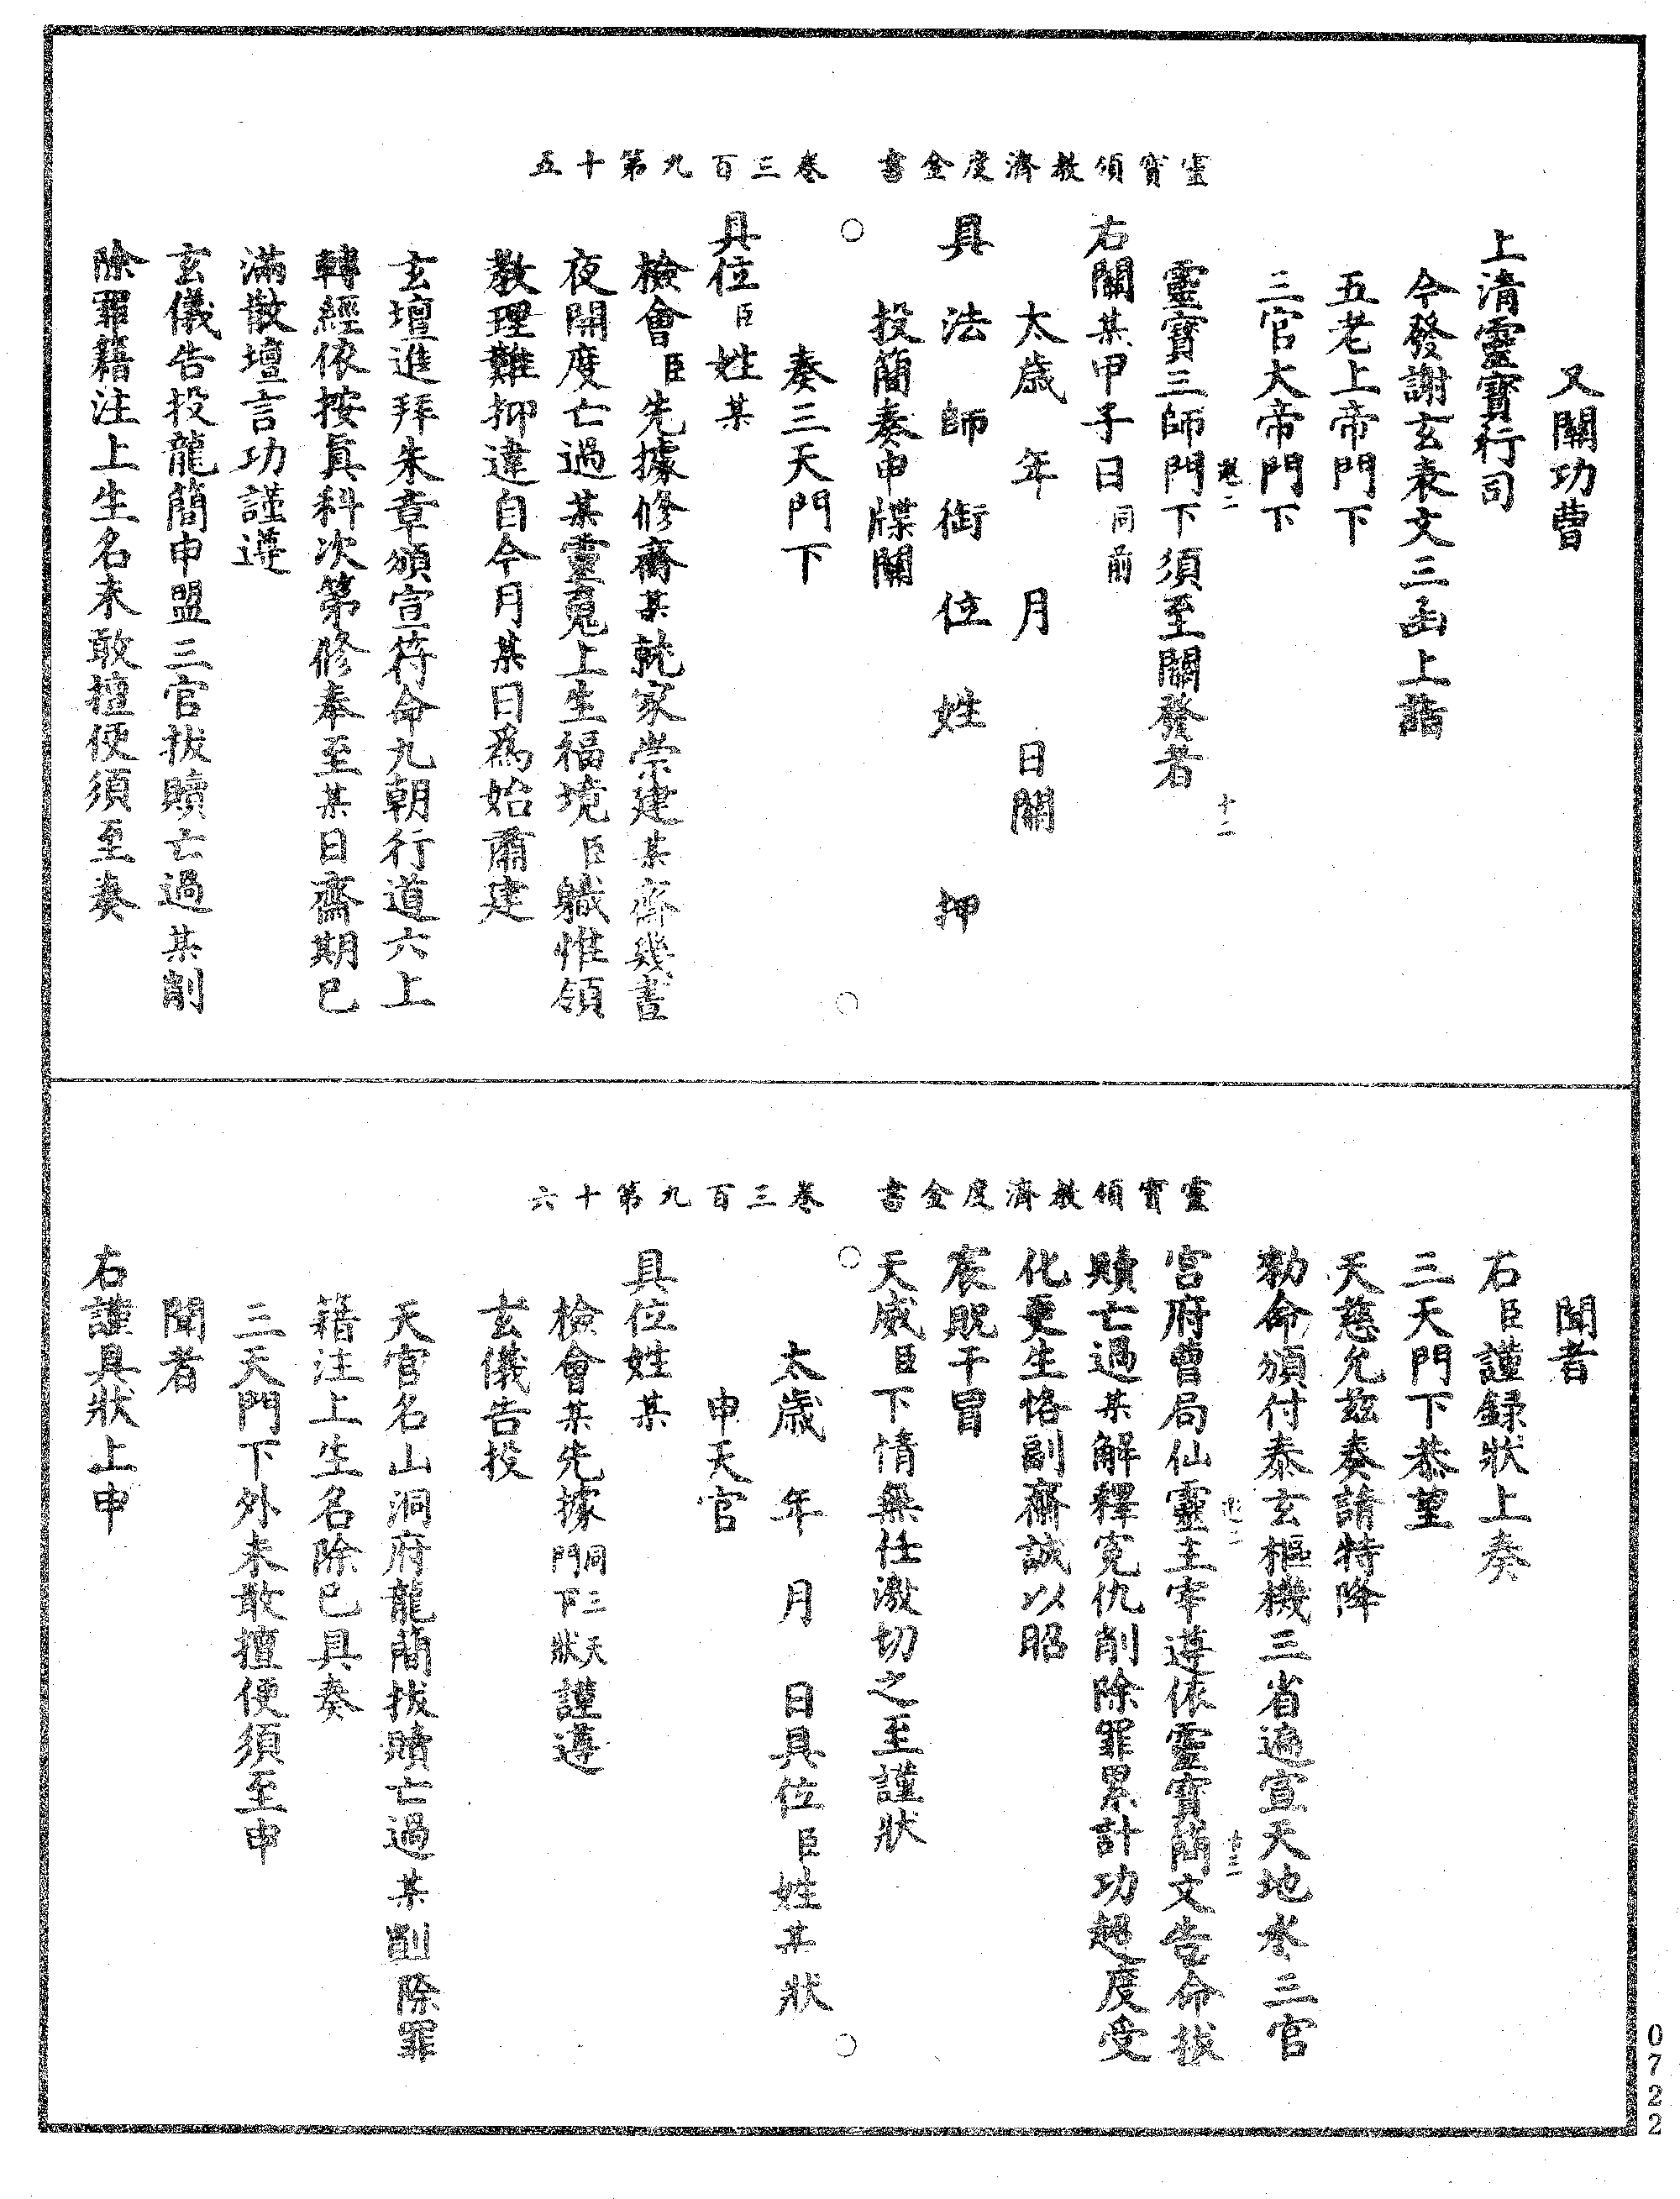 靈寶領教濟度金書　卷三百九第十五
又關功曹
上清靈寶行司
今發謝玄表文三函上詣
五老上帝門下
三官大帝門下
十二
靈寶三師門下須至關發者
右關某甲子日同前
太歲　年　月　日關
具法師銜位姓　押
投簡奏申牒關
奏三天門下
具位臣姓某
檢會臣先據修齋某就家崇建某齋幾晝
夜開度亡過某靈魂上生福境臣職惟領
教理難抑違自今月某日爲始肅建
玄壇進拜朱章頒宣符命九朝行道六上
轉經依按眞科次第修奉至某日齋期已
滿散壇言功謹遵
玄儀告投龍簡申盟三官拔贖亡過某削
除罪籍注上生名未敢擅便須至奏
靈寶領教濟度金書　卷三百九第十六
聞者
右臣謹錄狀上奏
三天門下恭望
天慈允茲奏請特降
勑命頒付泰玄樞機三省遍宣天地水三官
十三
宮府曹局仙靈主宰遵依靈寶簡文告命拔
贖亡過某解釋冤仇削除罪累計功超度受
化更生恪副齋誠以昭
宸貺干冒
天威臣下情無任激切之至謹狀
太歲　年　月　日具位臣姓某狀
申天官
具位姓某
檢會某先據同三天門下狀謹遵
玄儀告投
天官名山洞府龍簡拔贖亡過某削除罪
籍注上生名除已具奏
三天門下外未敢擅便須至申
聞者
右謹具狀上申
0722